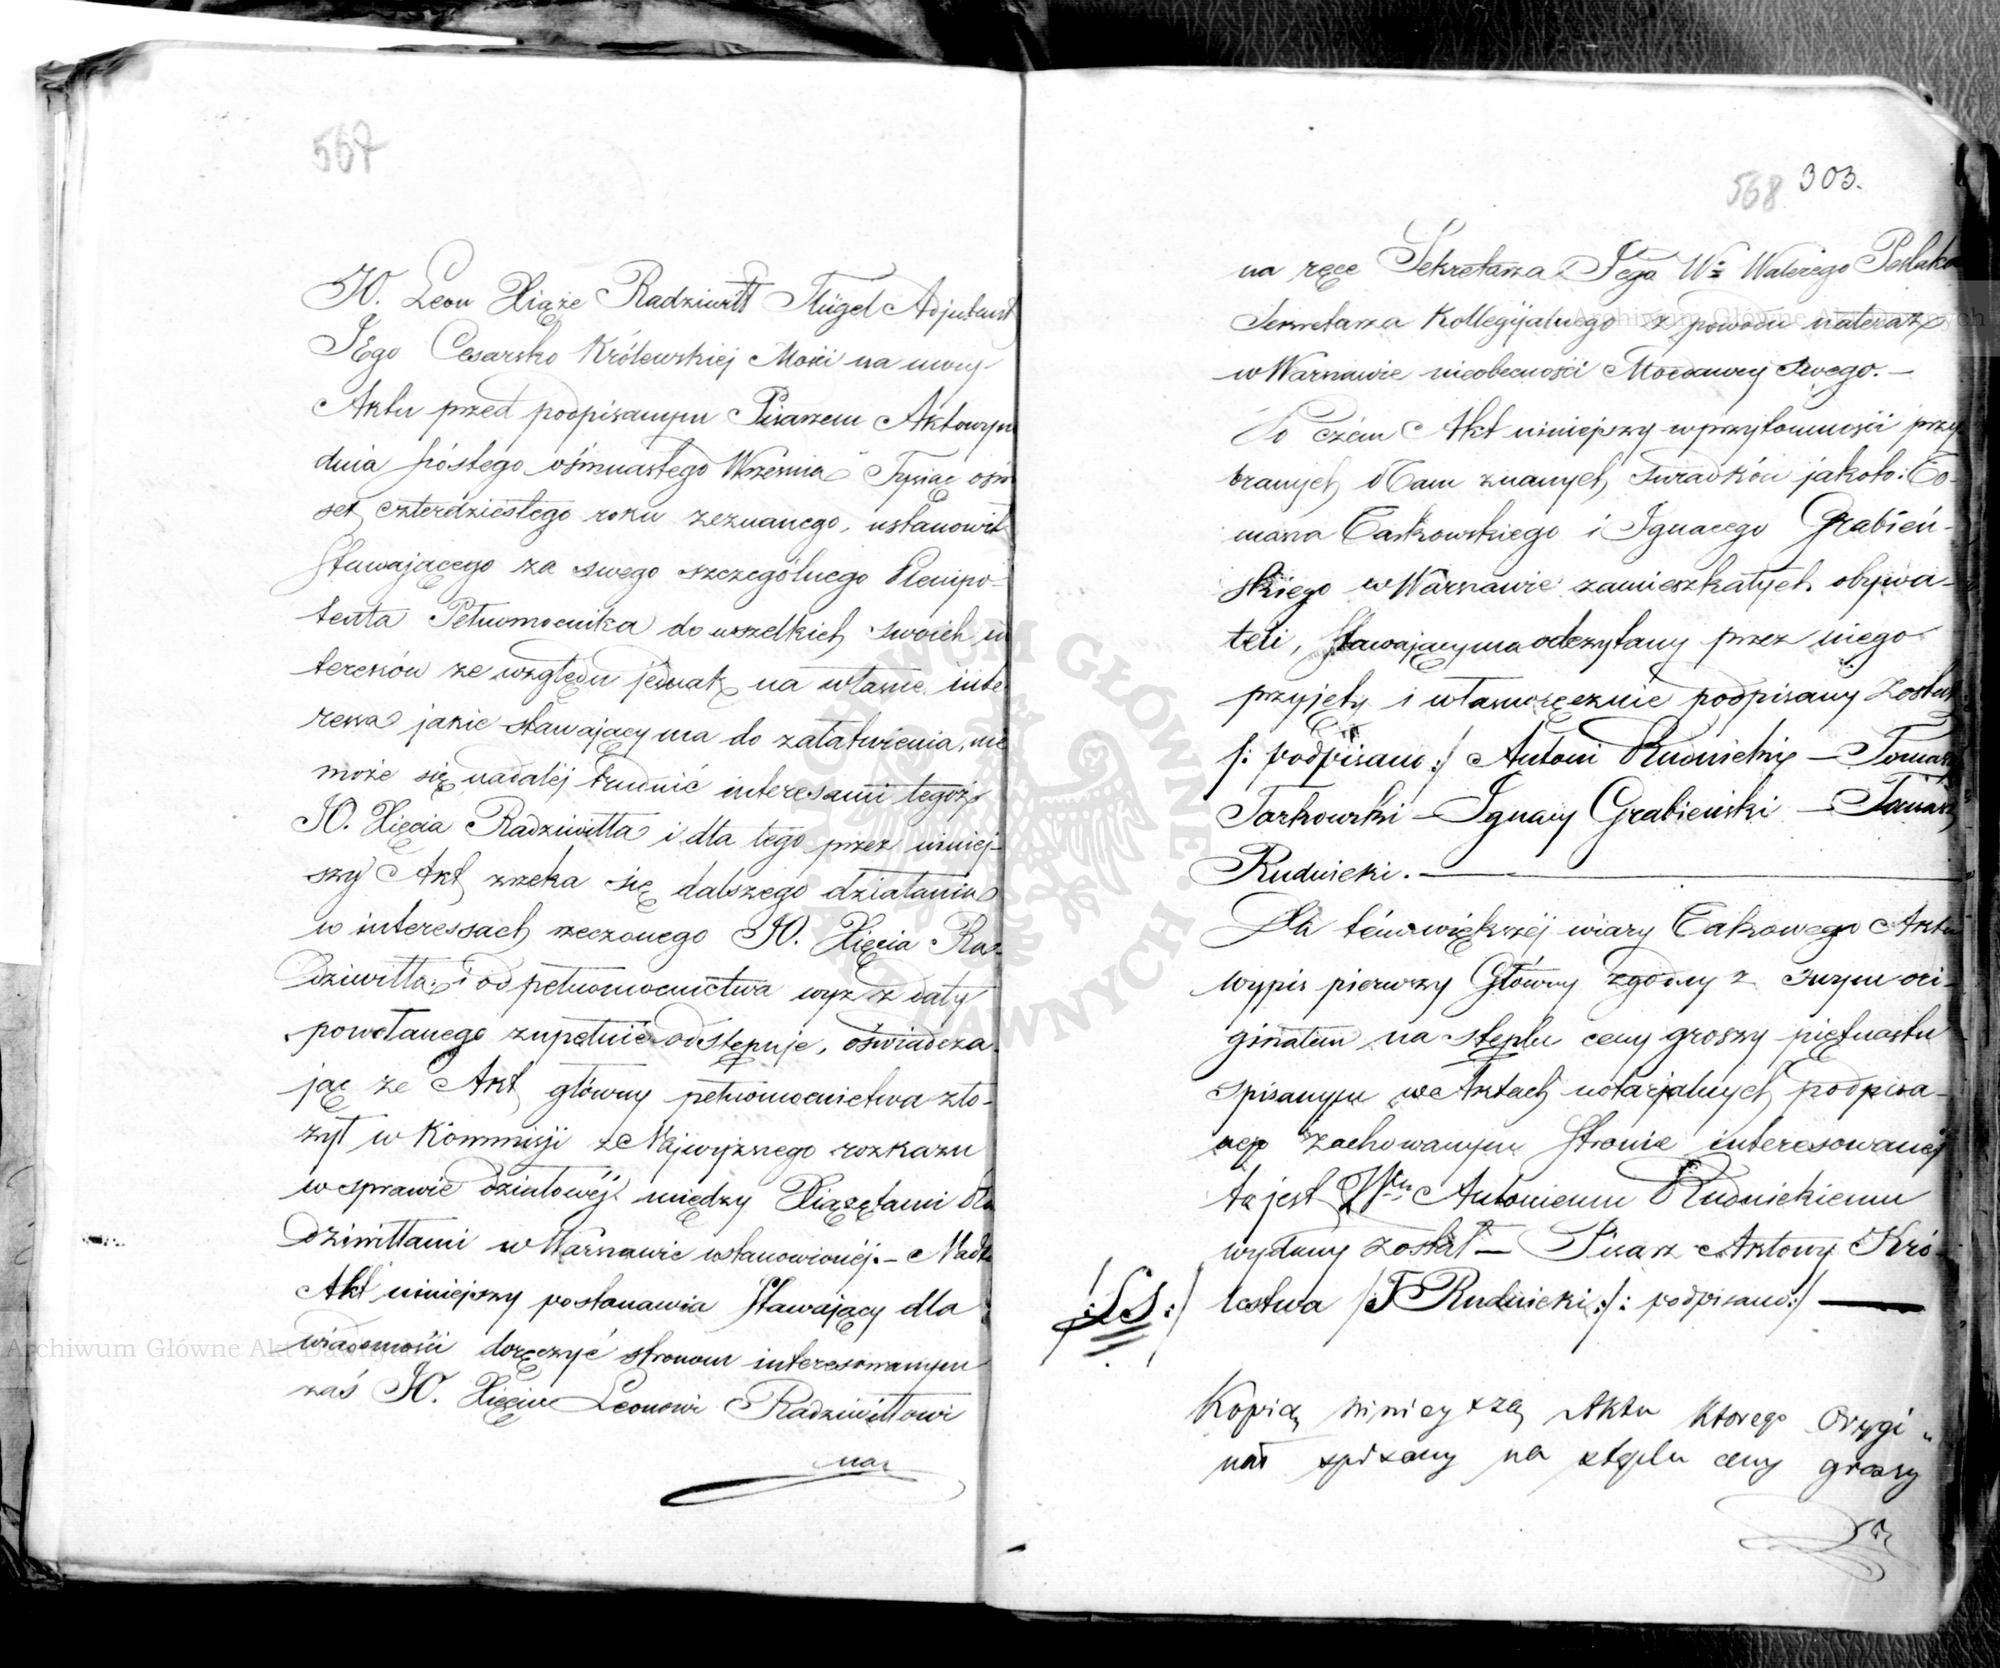 567
JO. Leon Xiąże Radziwiłł Flügel Adjutant
JEgo Cesarsko Królewskiej Mości na mocy
Aktu przed podpisanym Pisarzem Aktowym
dnia szóstego ośmnastego Września Tysiąc ośm
set czterdziestego roku zeznanego, ustanowił
Stawającego za swego szczególnego Plenipo-
tenta Pełnomocnika do wszelkich swoich in
teressów ze względu jednak na własne inte
ressa jakie stawający ma do załatwienia, nie
może się nadaléj trudnić interesami tegoż
JO. Xięcia Radziwiłła i dla tego przez niniej-
szy Akt zrzeka się dalszego działania
w interessach rzeczonego JO. Xięcia Ra-
dziwiłła i od pełnomocnictwa wyż z daty
powołanego zupełnie odstępuje, oświadcza-
jąc że Akt główny pełnomocnictwa zło-
żył w Kommisji z Najwyższego rozkazu
w sprawie działowéj między Xiążętami Ra
dziwiłłami w Warszawie ustanowionéj. – Nadto
Akt niniejszy postanawia Stawający dla
wiadomości doręczyć stronom interesowanym
zaś JO. Xięciu Leonowi Radziwiłłowi
na
568 303.
na ręce Sekretarza Jego Wo Walerego
Sekretarza Kollegijalnego z powodu nateraz
w Warszawie nieobecności Mocdawcy swego. –
Po czém Akt niniejszy w przytomności przy
branych Nam znanych świadków jakoto: To-
masza Tarkowskiego i Ignacego Grabień-
skiego w Warszawie zamieszkałych obywa-
teli, Stawającemu odczytany przez niego
przyjęty i własnoręcznie podpisany został
/: podpisano :/ Antoni Rudnicki – Tomasz
Tarkowski – Ignacy Grabieński – Tomasz
Rudnicki. –
Dla tém większéj wiary Takowego Aktu
wypis pierwszy Główny zgodny z swym ori-
ginałem na stęplu ceny groszy piętnastu
spisanym w Aktach notarjalnych podpisa-
nego zachowanym Stronie interesowanéj
to jest Wmu Antoniemu Rudnickiemu
wydany został – Pisarz Aktowy Kró-
lestwa /T Rudnicki :/: podpisano :/ –
/: LS :/
Kopią niniejszą Aktu ktorego Orygi„
nał spisany na stęplu ceny groszy